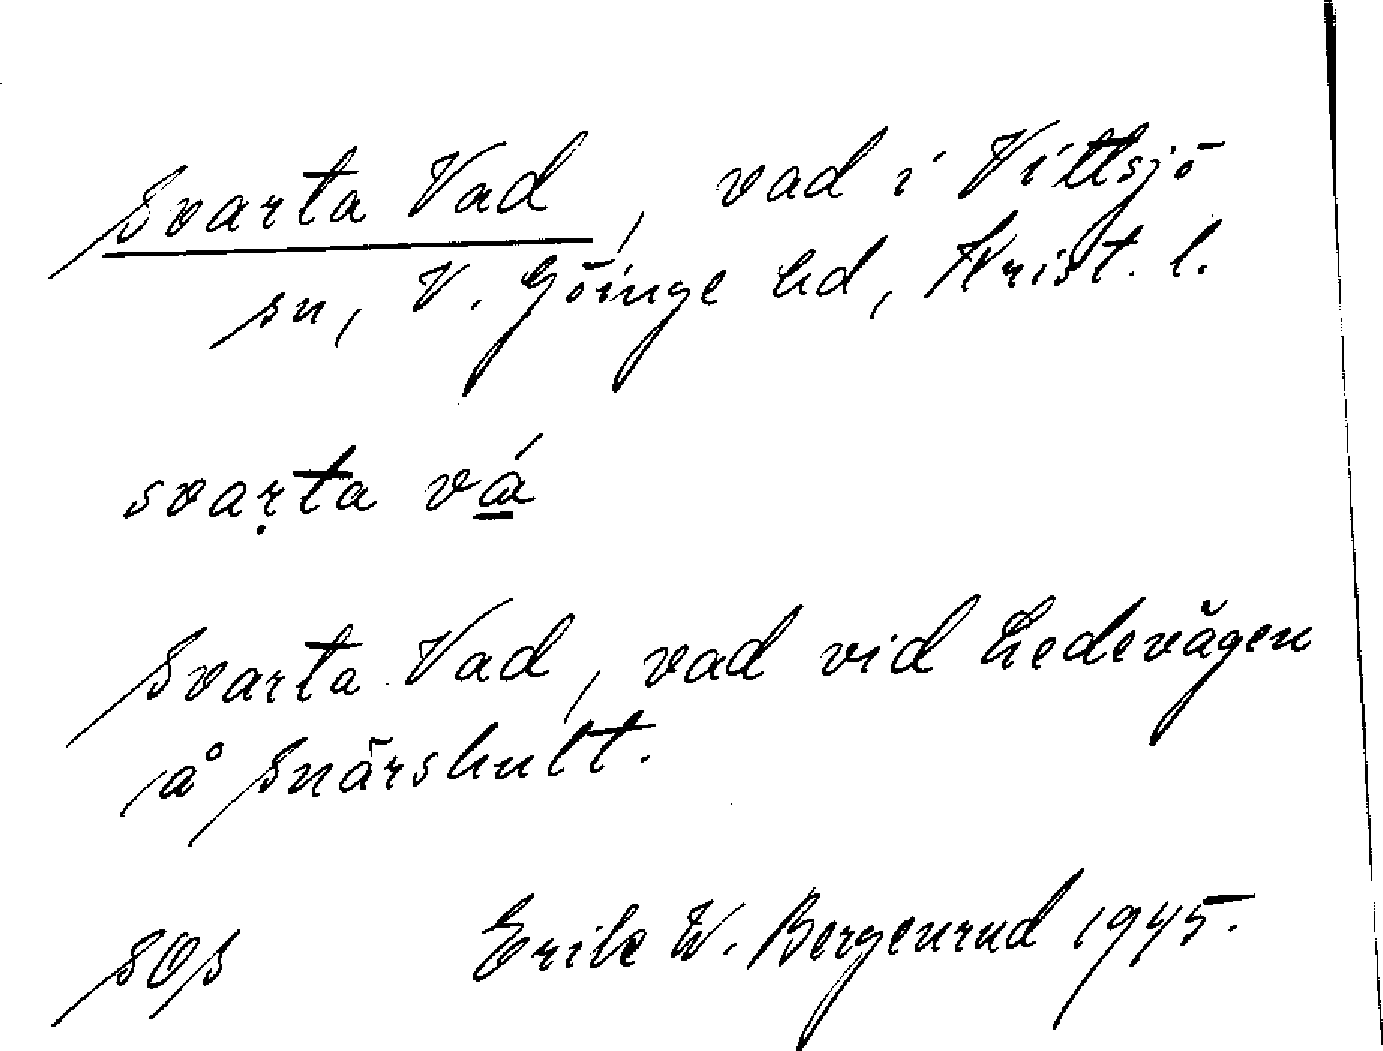 Svarta Vad, vad i Vittsjö
sn, V. Göinge hd, Krist. l.
svaṛta vá̲
Svarta Vad, vad vid Ledevägen
å Snärshult.
SOS Erik W. Bergenrud 1945.